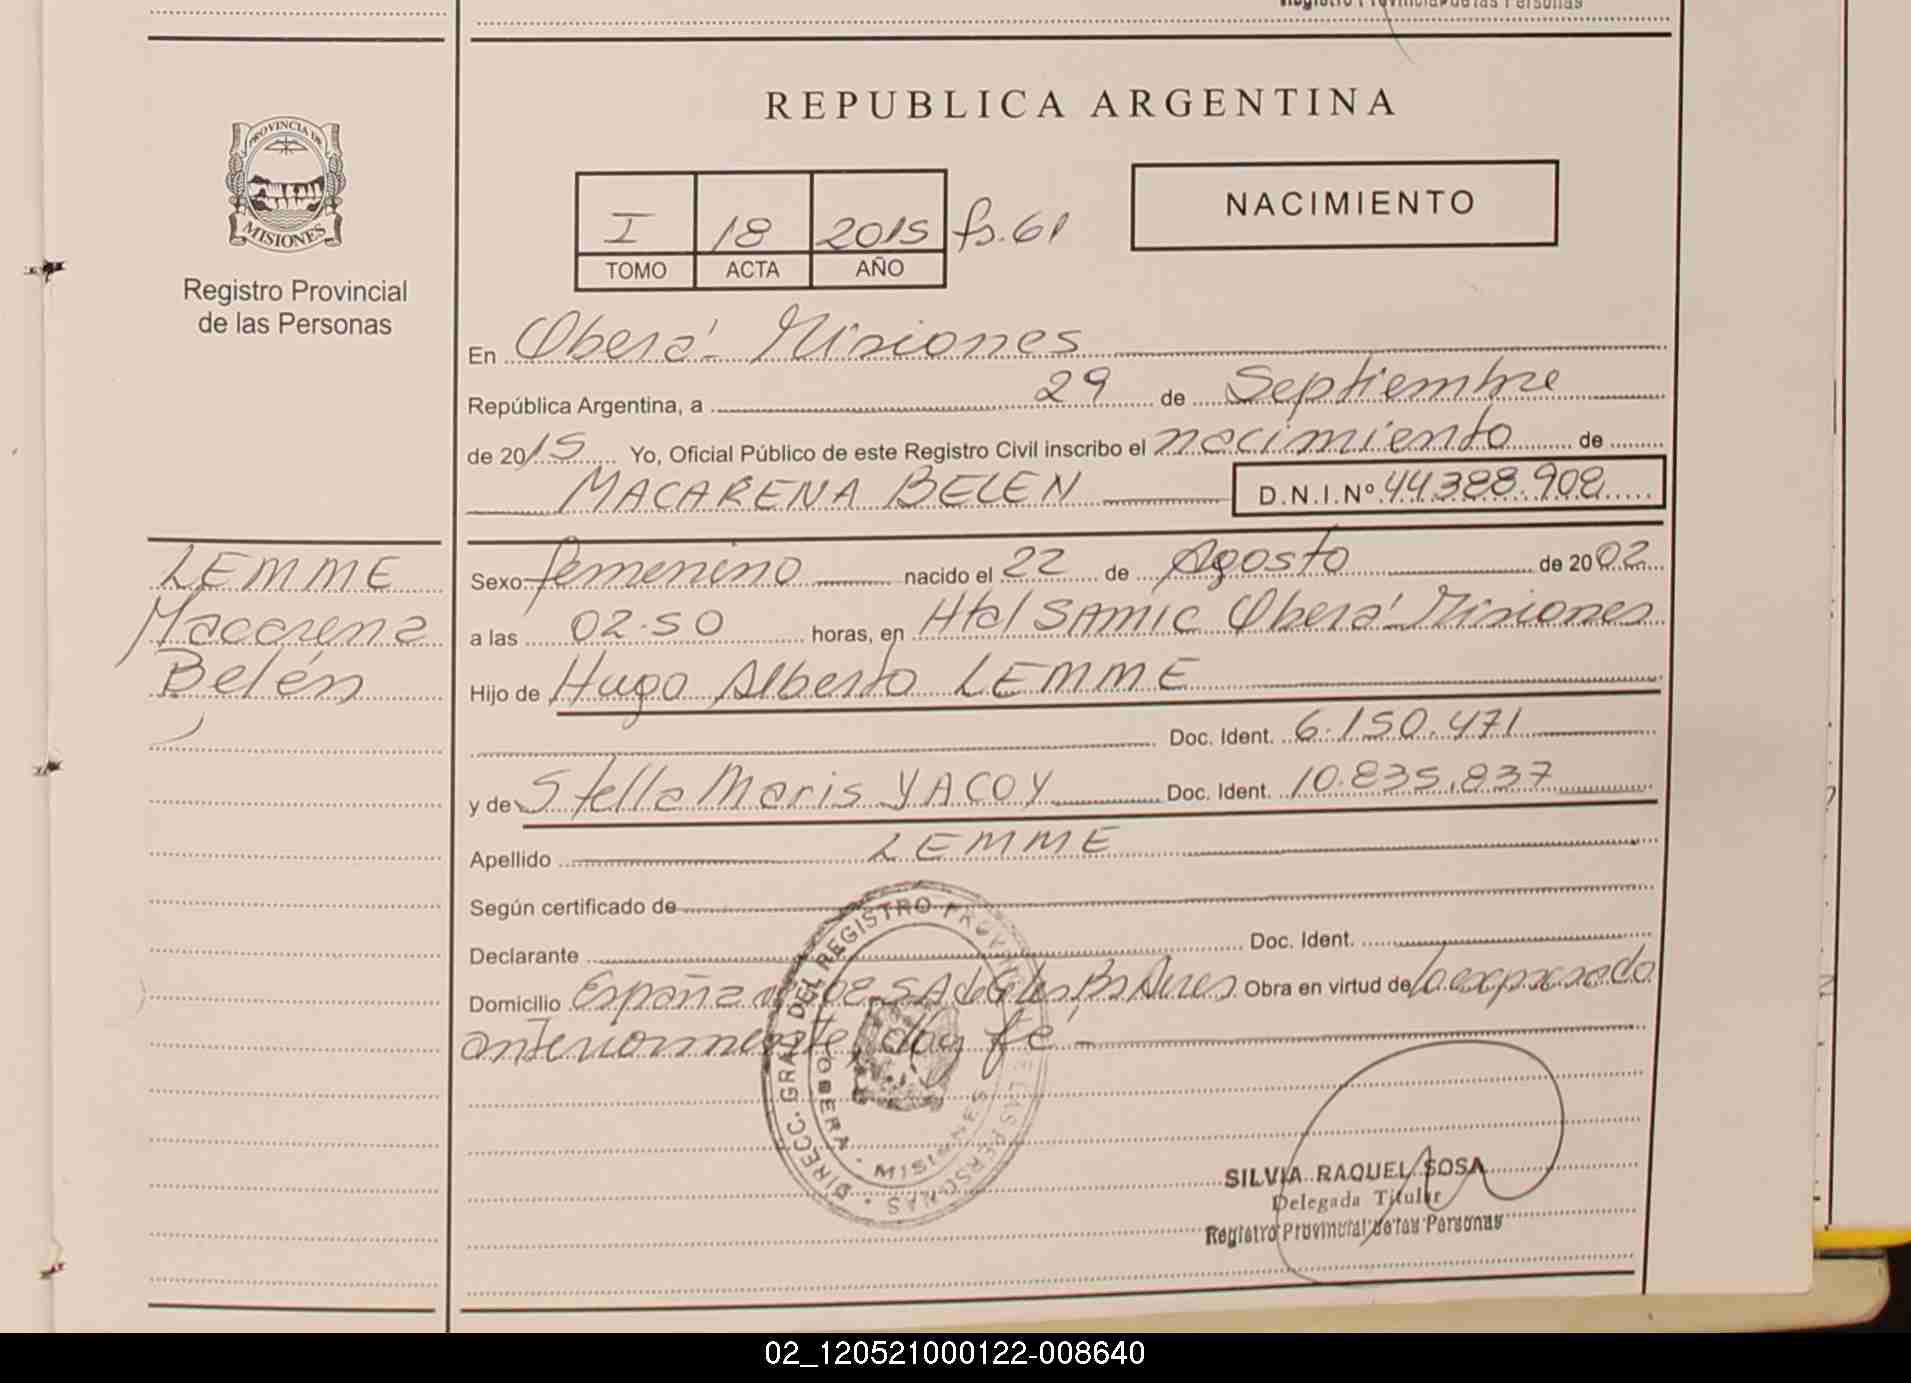 Registro Provincial de las Personas
REPUBLICA ARGENTINA
PROVINCIA DE
MISIONES
Registro Provincial
de las Personas
I 18 2015 fs. 61
TOMO ACTA AÑO
NACIMIENTO
En Oberá - Misiones
República Argentina, a 29 de Septiembre
de 2015 Yo, Oficial Público de este Registro Civil inscribo el nacimiento de
MACARENA BELEN D.N.I.Nº 44.388.908
LEMME
Macarena
Belén
Sexo femenino nacido el 22 de Agosto de 2002
a las 02.50 horas, en Htal SAMIC Oberá - Misiones
Hijo de Hugo Alberto LEMME
Doc. Ident. 6.150.471
y de Stella Maris YACOY Doc. Ident. 10.835.837
Apellido LEMME
Según certificado de
Declarante Doc. Ident.
Domicilio España Bs Aires Obra en virtud de lo expresado
anteriormente, doy fe -
DIRECC. GRAL. DEL REGISTRO PROVINCIAL DE LAS PERSONAS
OBERA - MISIONES
SILVIA RAQUEL SOSA
Delegada Titular
Registro Provincial de las Personas
02_120521000122-008640